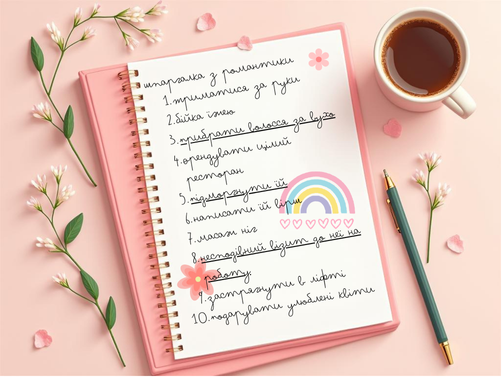 шпаргалка з романтики
1.триматися за руки
2.бійка їжею
3.прибрати волосся за вухо
4.орендувати цілий
ресторан
5.підморгнути їй
6.написати їй вірш
7.масаж ніг
8.несподівний візит до неї на
роботу
9.застрягнути в ліфті
10.подарувати улюблені квіти